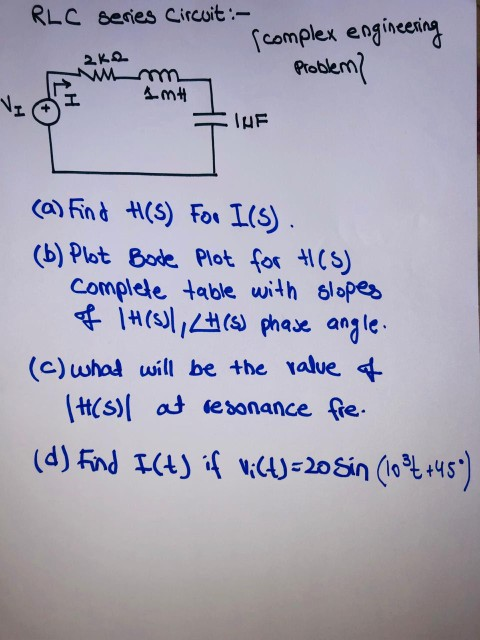 RLC series Circuit:-
{complex engineering
Problem}
2KΩ
1mH
I
VI
+
1μF
(a) Find H(S) For I(S).
(b) Plot Bode Plot for H(S)
Complete table with slopes
of |H(S)|, ∠H(S) phase angle.
(c) what will be the value of
|H(S)| at resonance fre.
(d) Find I(t) if vi(t)=20 Sin (10³t+45°)